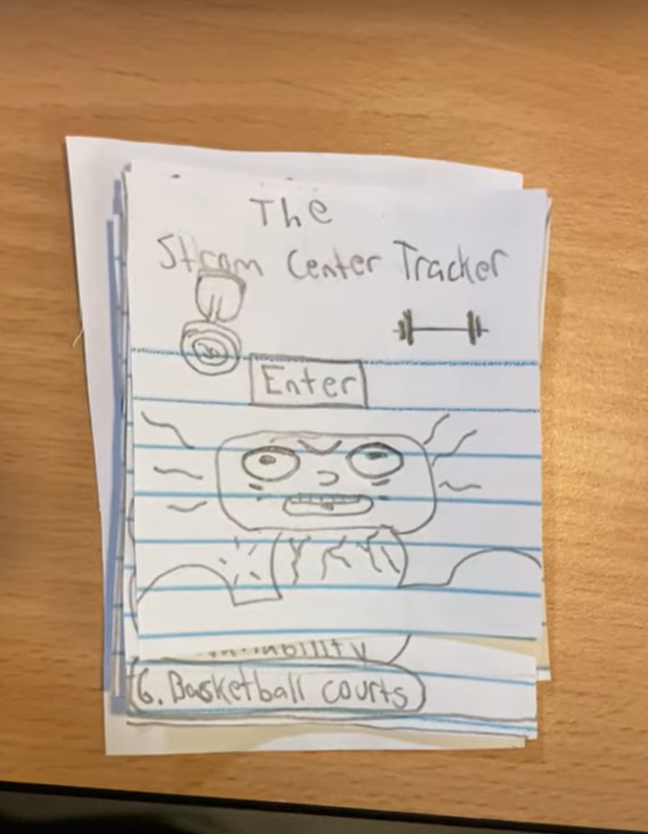 The
Strom Center Tracker
Enter
6. Basketball courts